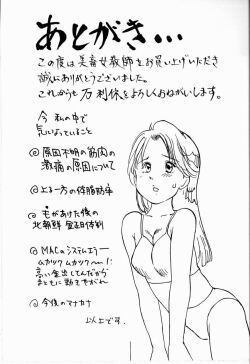 あとがき・・・
この度は美畜女教師をお買い上げいただき
誠にありがとうございました。
これからも石利休をよろしくおねがいします。
今 私の中で
気になっていること
◎原因不明の筋肉の
激痛の原因について
◎よる一方の体脂肪率
の
北朝鮮
◎MACのシステムエラー
ムカツク ムカツク
高い金出してんだから
まともに動きやがれ
◎今後のマナカナ
以上です。